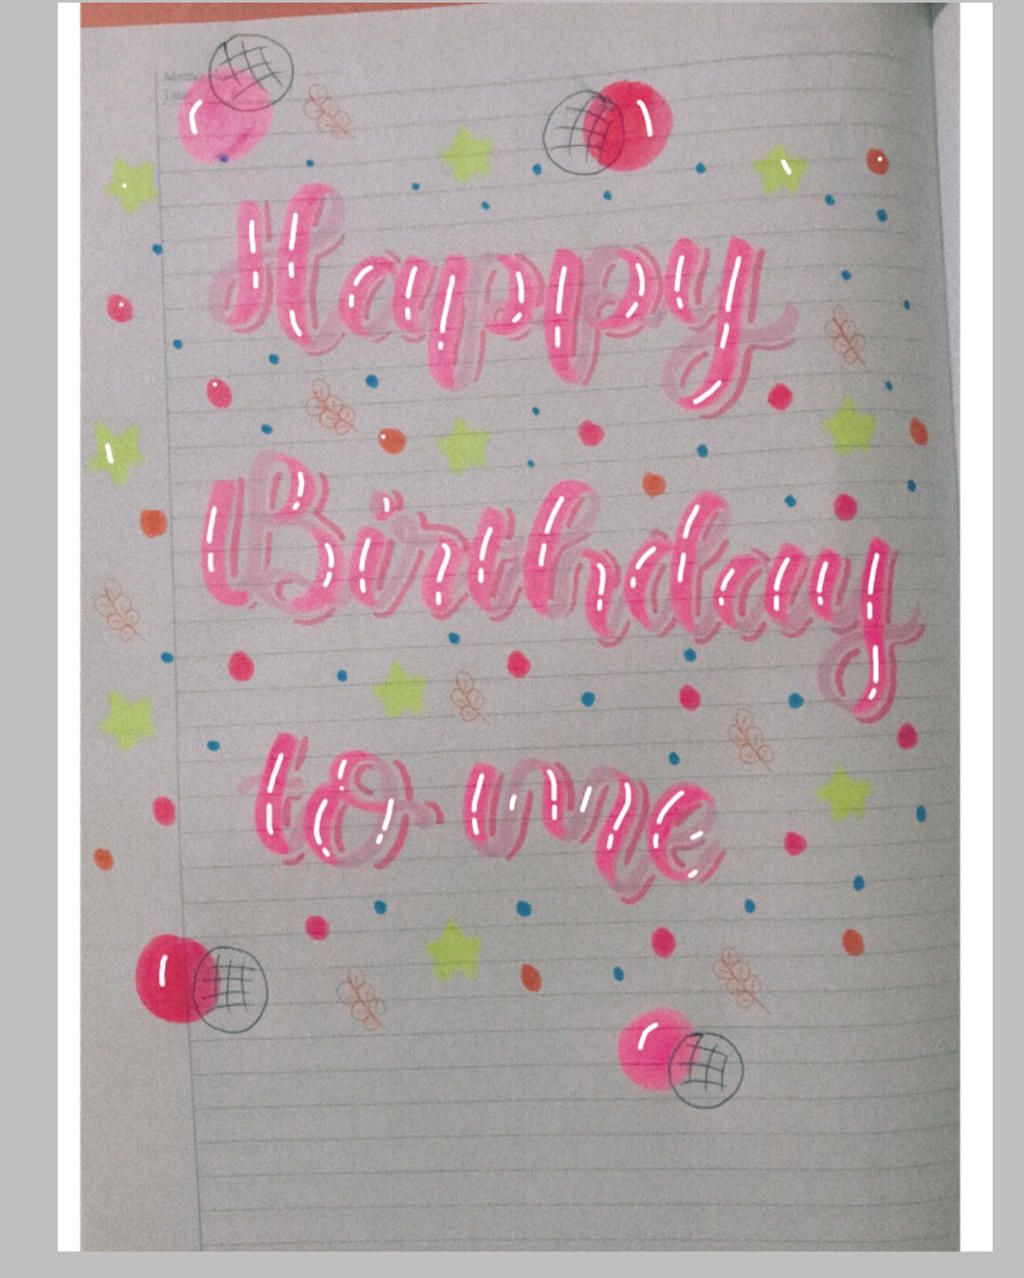 Happy
Birthday
to me